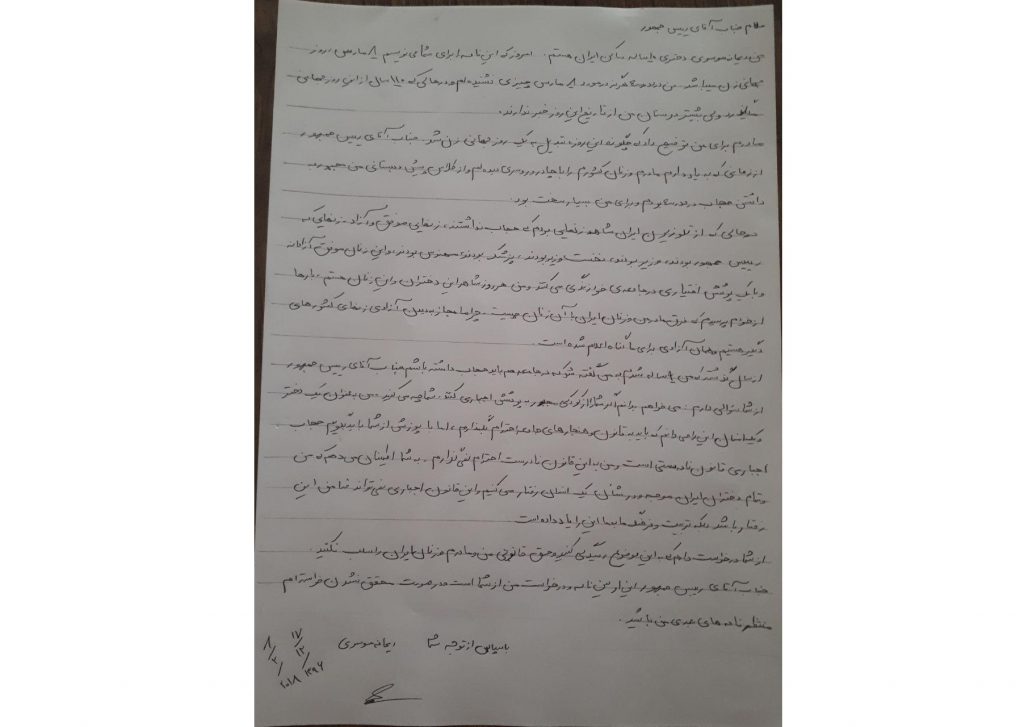 سلام جناب آقای رییس جمهور
من ایمانه موسوی دختری ۱۰ ساله ساکن ایران هستم. امروز که این نامه را برای شما می نویسم ۸ مارس، روز
جهانی زن میباشد. من در مدرسه هرگز در مورد ۸ مارس چیزی نشنیده ام و در حالی که ۱۱۰ سال از این روز جهانی
ولی بیشتر دوستان من از تاریخ این روز خبر ندارند.
مادرم برای من توضیح داد که چگونه این روز، تبدیل به یک روز جهانی زن شد. جناب آقای رییس جمهور
از زمانی که به یاد دارم مادرم و زنان کشورم را با چادر و روسری دیده ام و از کلاس پیش دبستانی من مجبور به
داشتن حجاب در مدرسه بودم و برای من بسیار سخت بود.
در حالی که از تلوزیون ایران شاهد زنهایی بودم که حجاب نداشتند، زنهایی موفق و آزاد. زنهایی که
رییس جمهور بودند، وزیر بودند، نخست وزیر بودند، پزشک بودند، مهندس بودند، و این زنان موفق آزادانه
و با یک پوشش اختیاری در جامعه ی خود زندگی می کنند و من هر روز شاهد این دختران و این زنان هستم. بارها
از خودم پرسیدم که فرق مادر من و زنان ایران با آن زنان چیست. چرا ما مجاز به دیدن آزادی زنهای کشورهای
دیگر هستیم و همان آزادی برای ما گناه اعلام شده است.
از سال گذشته که من ۹ ساله شدم به من گفته شد که در جامعه هم باید حجاب داشته باشم جناب آقای رییس جمهور
از شما سوالی دارم. می خواهم بدانم اگر شما را از کودکی مجبور به پوشش اجباری کنند، شما چه می کنید. من به عنوان یک دختر
و یک انسان این را می دانم که باید به قانون و هنجارهای جامعه احترام بگذارم، اما با پوزش از شما باید بگویم حجاب
اجباری قانون نادرستی است و من به این قانون نادرست احترام نمی گذارم. به شما اطمینان می دهم که من
و تمام دختران ایران همیشه در شان یک انسان رفتار می کنیم و این قانون اجباری نمی تواند ضامن این
رفتار باشد بلکه تربیت و فرهنگ ما به ما این را یاد داده است
از شما درخواست دارم که به این موضوع رسیدگی کنید و حق قانونی من و مادرم و زنان ایران را سلب نکنید.
جناب آقای رییس جمهور این اولین نامه و درخواست من از شما است و در صورت محقق نشدن خواسته ام
منتظر نامه های بعدی من باشید.
با سپاس از توجه شما ایمانه موسوی
۱۷/۱۲/۱۳۹۶
۸/۳/۲۰۱۸